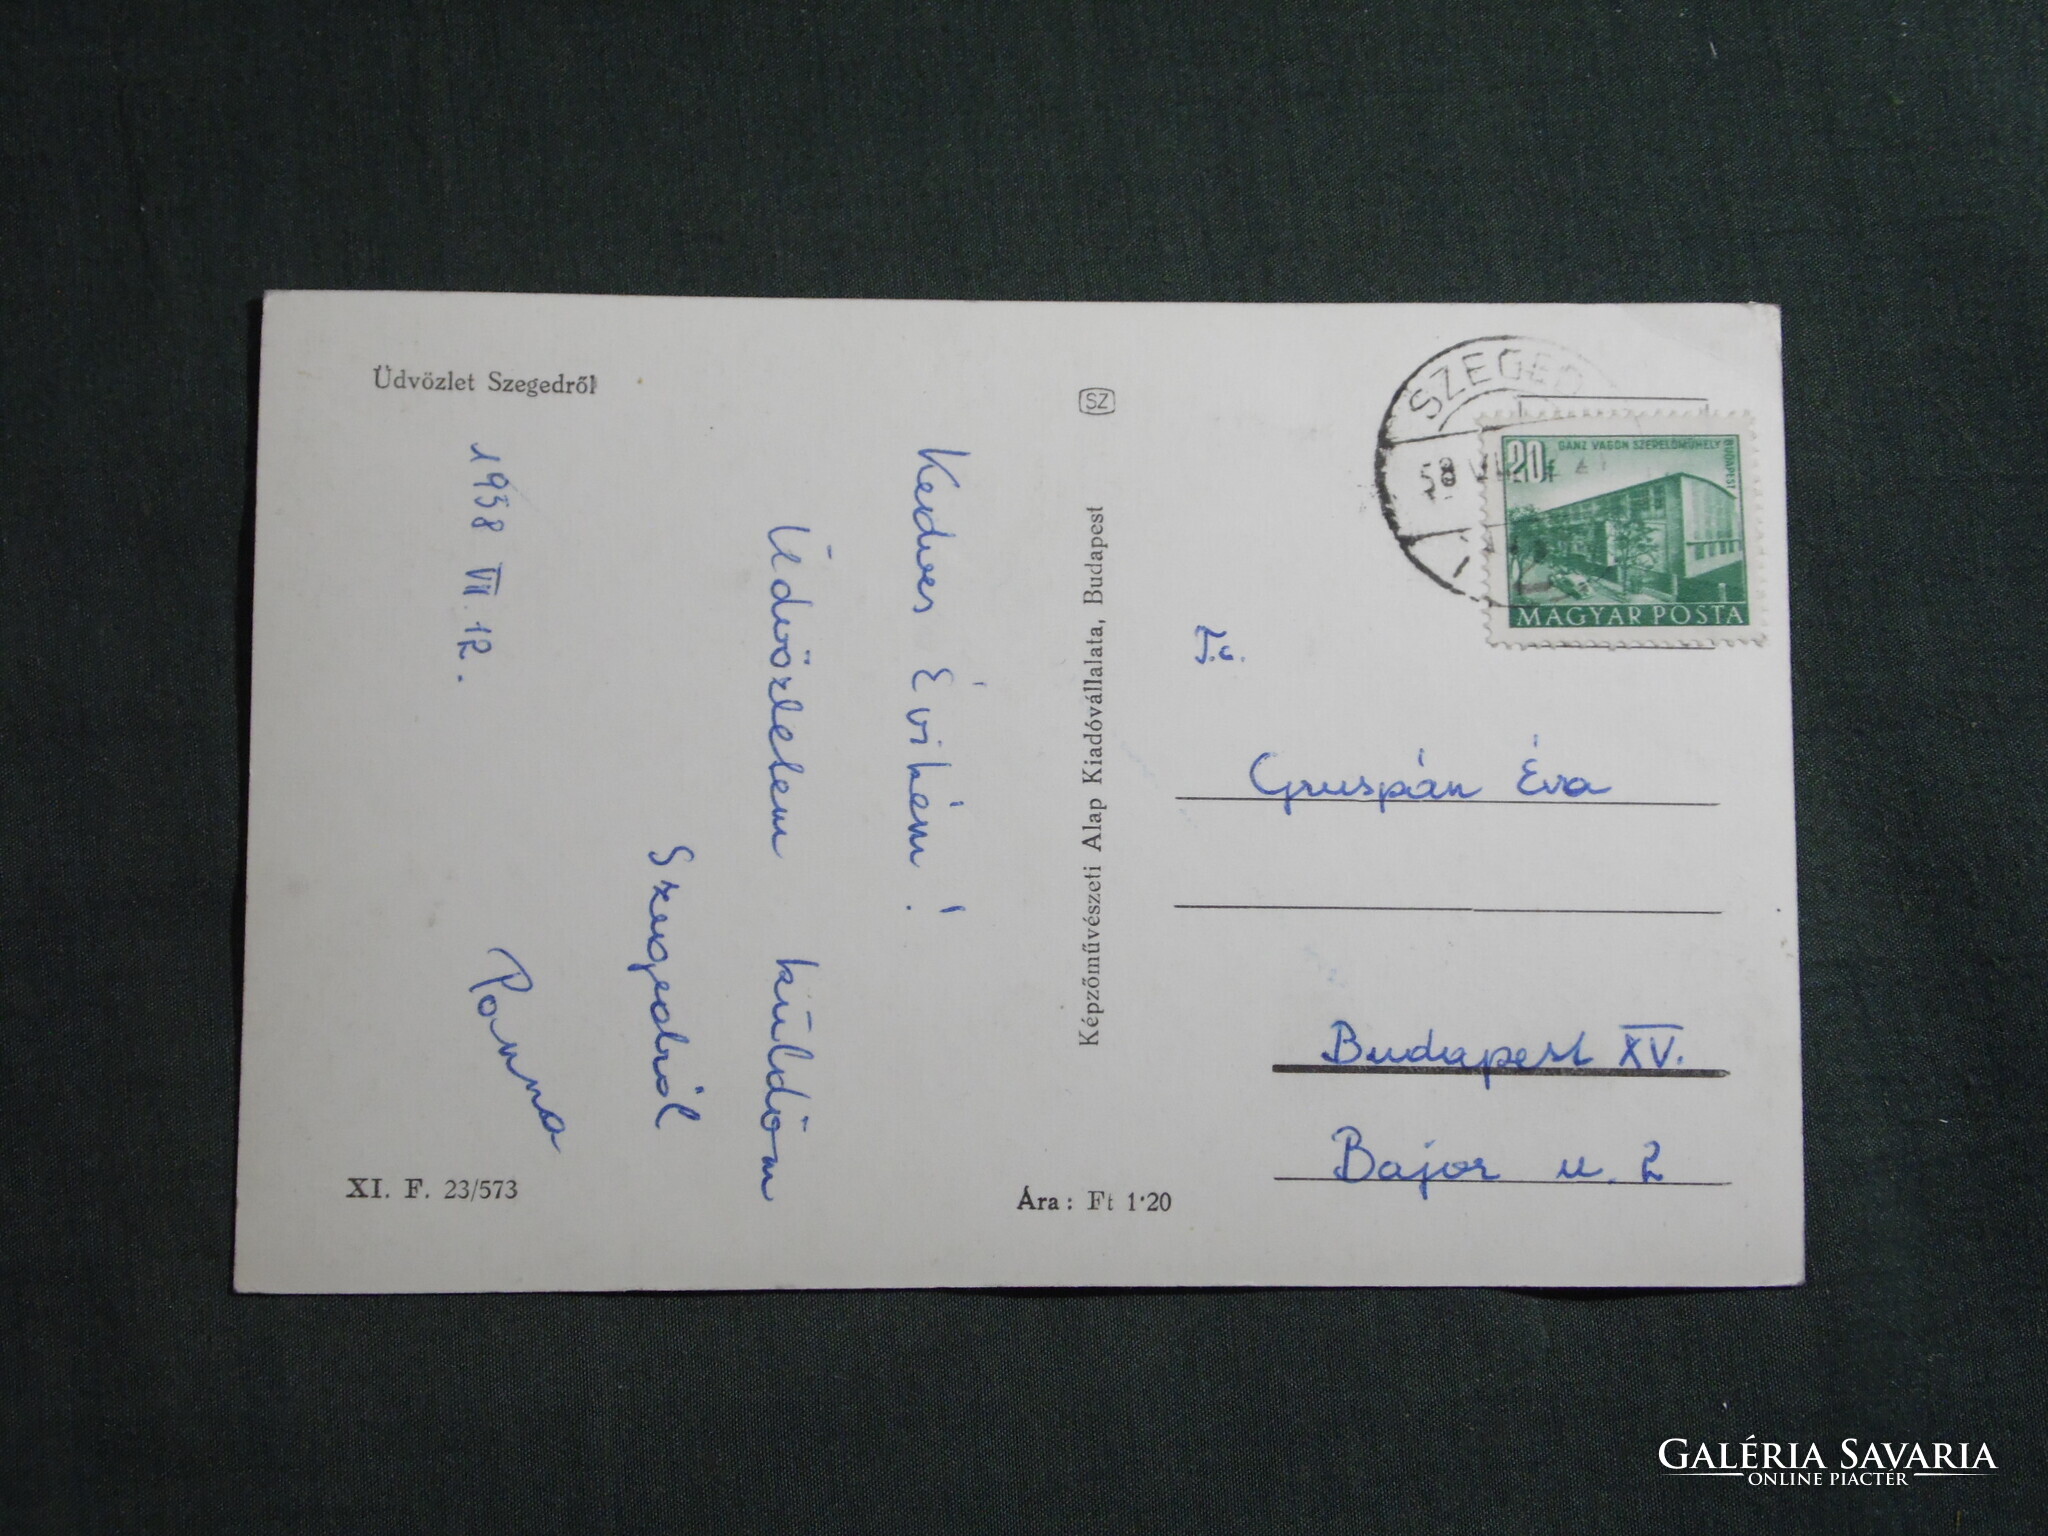 Üdvözlet Szegedről
Kedves Évikém!
Üdvözletem küldöm
Szegedről
Panna
1958 VII. 12.
XI. F. 23/573
Ára: Ft 1·20
SZ
Képzőművészeti Alap Kiadóvállalata, Budapest
SZEGED
58 VII
20f
GANZ VAGON SZERELŐMŰHELY
BUDAPEST
MAGYAR POSTA
T.c.
Gruspán Éva
Budapest XV.
Bajor u. 2
GALÉRIA SAVARIA
ONLINE PIACTÉR